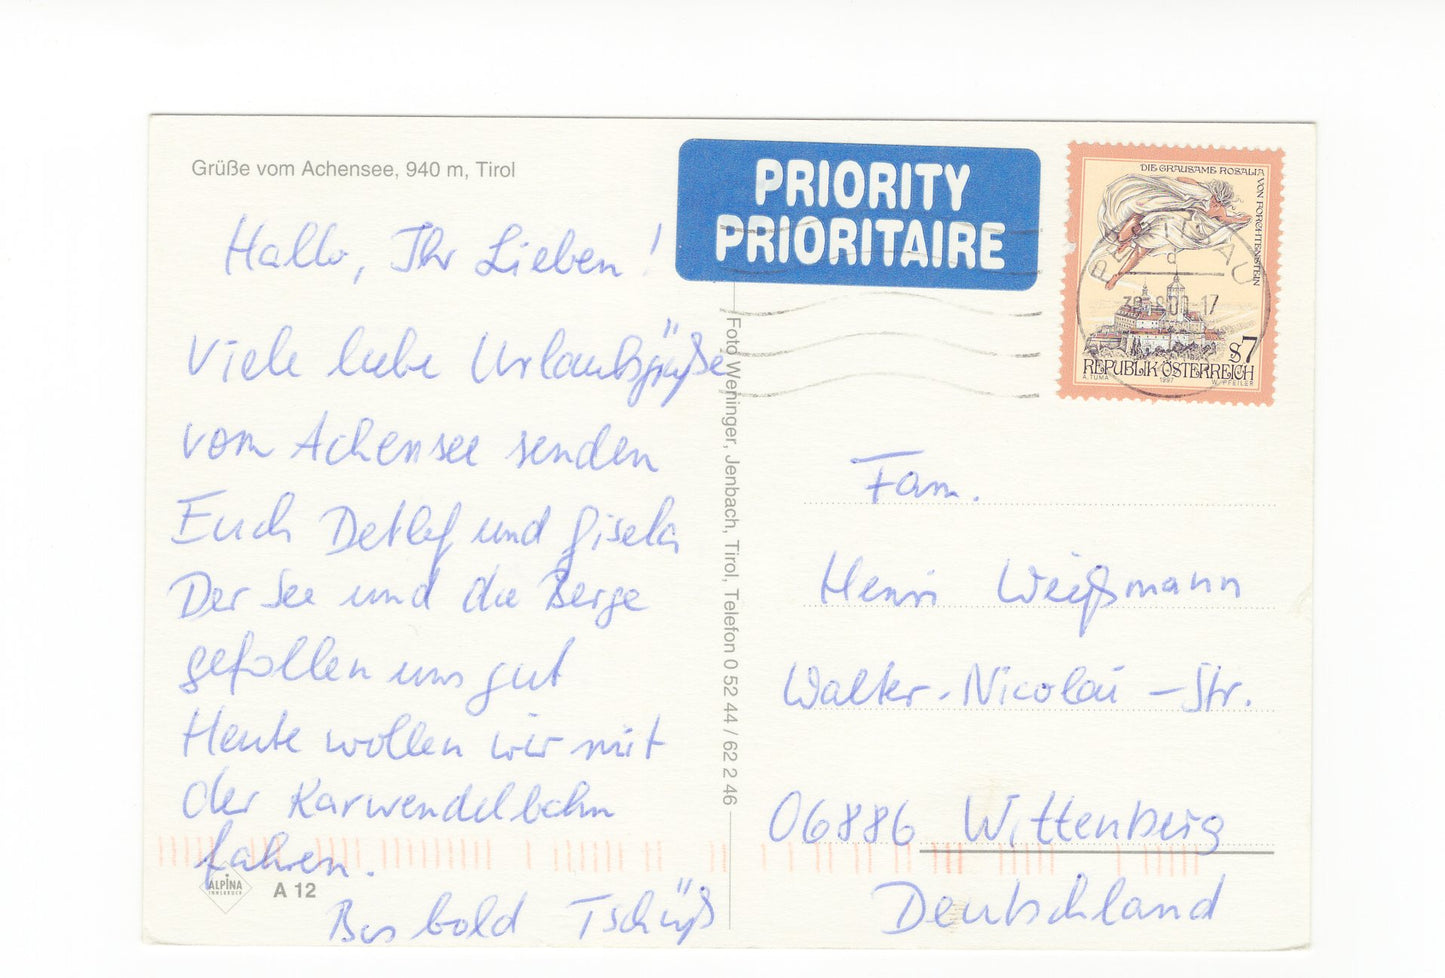 Grüße vom Achensee, 940 m, Tirol
Hallo, Ihr Lieben!
Viele liebe Urlaubsgrüße
vom Achensee senden
Euch Detlef und Gisela
Der See und die Berge
gefallen uns gut
Heute wollen wir mit
der Karwendelbahn
fahren.
Bis bald Tschüß
ALPINA
INNSBRUCK
A 12
Foto Weninger, Jenbach, Tirol, Telefon 0 52 44 / 62 2 46
PRIORITY
PRIORITAIRE
DIE GRAUSAME ROSALIA
VON FORCHTENSTEIN
S7
REPUBLIK ÖSTERREICH
A. TUMA 1997 W. PFEILER
Fam.
Henri Weißmann
Walter-Nicolai-Str.
06886 Wittenberg
Deutschland